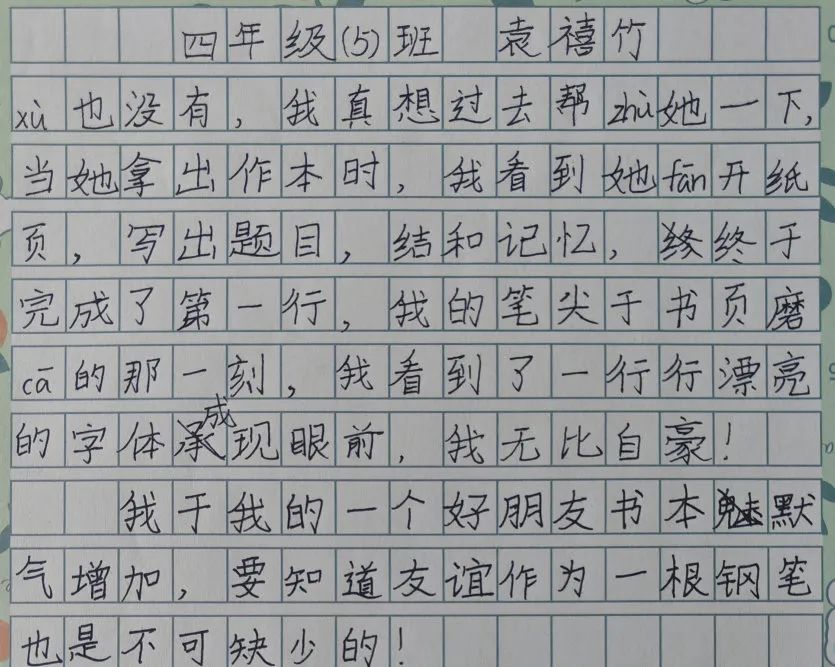 四年级(5)班 袁禧竹
xù也没有，我真想过去帮zhù她一下，
当她拿出作本时，我看到她fān开纸
页，写出题目，结和记忆，终于
完成了第一行，我的笔尖于书页磨
cā的那一刻，我看到了一行行漂亮
的字体成现眼前，我无比自豪！
我于我的一个好朋友书本默
气增加，要知道友谊作为一根钢笔
也是不可缺少的！